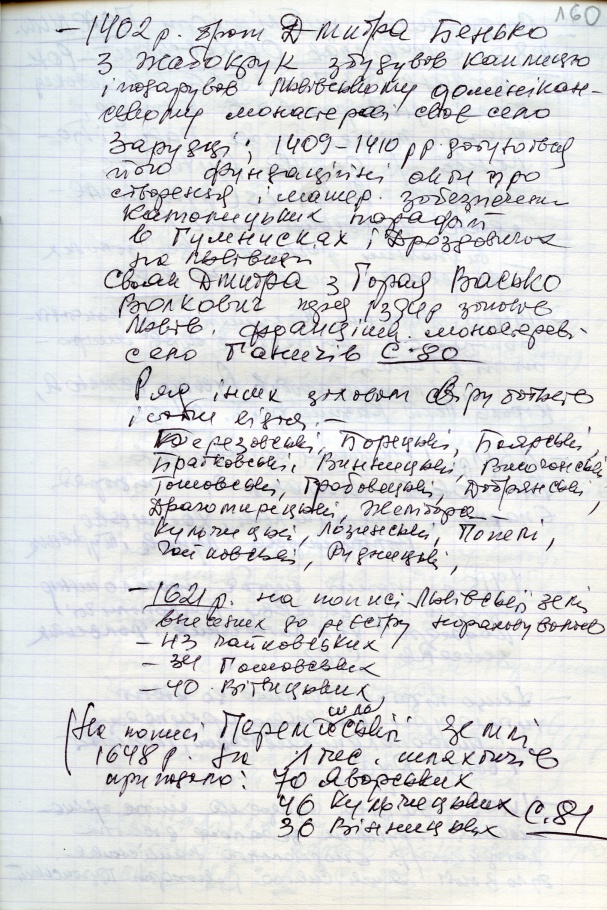 160
– 1402 р. брат Дмитра Бенько
з Жабокрук збудував каплицю
і подарував Львівському домінікан-
ському монастереві своє село
Зарудці; 1409–1410 рр. датуються
його фундаційні акти про
створення і матер. забезпечення
католицьких парафій
в Гумниськах і Дроздовичах
на Львівщині
Сваяк Дмитра з Горая Васько
Волкович перед 1371 р заповів
Львів. францішк. монастереві
село Ганичів С. 80
Ряд інших заховали віру батьків
і стали
Березовські, Борецькі, Боярські,
Братковські, Винницькі, Височанські
Гошовські, Грабовецькі, Добрянські,
Драгомирецькі, Жемборе
Кульчицькі, Лозинські, Попелі,
Чайковські, Рудницькі,
– 1621 р. на пописі Львівської землі
внесених до реєстру нараховувалося
– 43 Чайковських
– 34 Гошовських
– 40 Вітвицьких
(На пописі Перемишльській землі
1648 р. на 1 тис. шляхтичів
припадало: 70 Яворських
46 Кульчицьких С. 81
36 Вінницьких